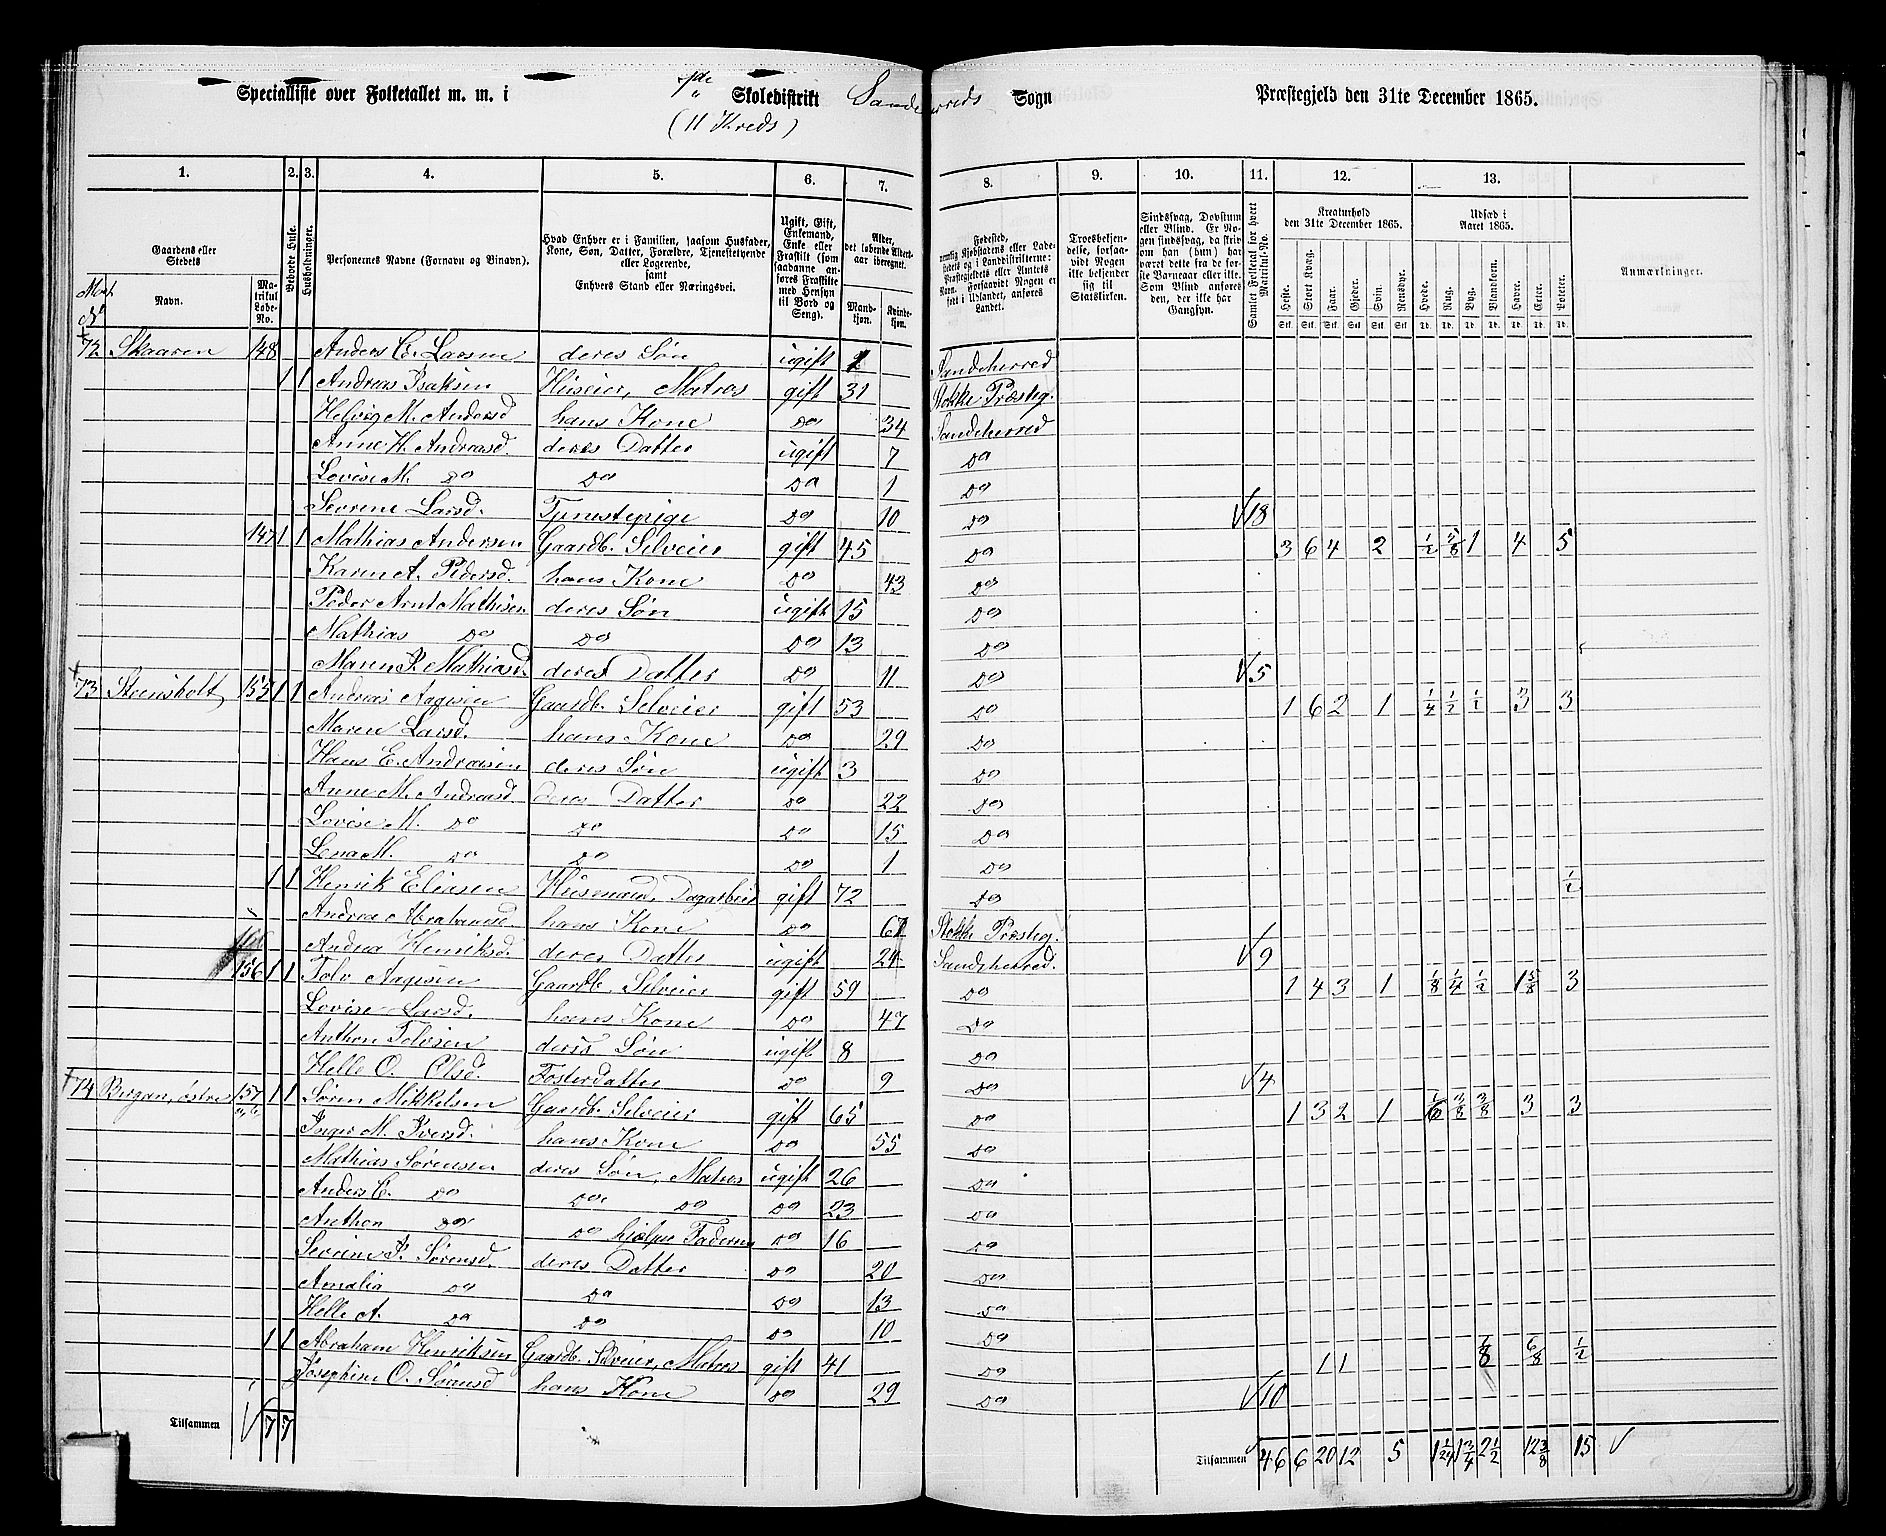 Specialliste over Folketallet m. m. i 1de Skoledistrikt Sandeherreds Sogn Præstegjeld den 31te December 1865.
(11 Kreds)
1. 2. 3. 4. 5. 6. 7. 8. 9. 10. 11. 12. 13.
Gaardens eller Stedets
Navn.
Matrikul Løbe-No.
Beboede Huse.
Husholdninger.
Personernes Navne (Fornavn og Binavn).
Hvad Enhver er i Familien, saasom Husfader, Kone, Søn, Datter, Forældre, Tjenestetyende eller Logerende, samt Enhvers Stand eller Næringsvei.
Ugift, Gift, Enkemand, Enke eller Fraskilt (som saadanne anføres Fraskilte med Hensyn til Bord og Seng).
Alder, det løbende Alders-aar iberegnet.
Mandkjøn. Kvindekjøn.
Fødested,
Troesbekjendelse, forsaavidt Nogen ikke bekjender sig til Statskirken.
Sindssvag, Døvstum eller Blind. Er Nogen sindssvag, da skrives om han (hun) har været dette fra de første Barneaar eller ikke. Som Blind anføres den, der ikke har Gangsyn.
Samlet Folketal for hvert Matrikul-No.
Kreaturhold den 31te December 1865.
Heste. Stort Kvæg. Faar. Gjeder. Svin. Rensdyr.
Udsæd i Aaret 1865.
Hvede. Rug. Byg. Blandkorn. Havre. Erter. Poteter.
Anmærkninger.
72 Skaaren 148 Anders C. Larsen deres Søn ugift 2 Sandeherred
1 1 Andreas Isaksen Huseier, Matros gift 31 Stokke Præsteg.
Helvig M. Andersd hans Kone do 34 Sandeherred
Anne H. Andreasd. deres Datter ugift 7 do
Lovise M. do do do 1 do
Severine Larsd. Tjenestepige do 10 do 18
147 1 1 Mathias Andersen Gaardb. Selveier gift 45 do 3 6 4 2 1/2 5/8 1 4 5
Karen A. Pedersd. hans Kone do 43 do
Peder Arnt Mathisen deres Søn ugift 15 do
Mathias do do do 13 do
Maren I. Mathiasd. deres Datter do 11 do 5
73 Steensholt 155 1 1 Andreas Aagesen Gaardb. Selveier gift 53 do 1 6 2 1 1/4 1/2 1/2 3 3
Maren Larsd. hans Kone do 29 do
Hans E. Andreasen deres Søn ugift 3 do
Anne M. Andreasd. deres Datter do 22 do
Lovise M. do do do 15 do
Lena M. do do do 1 do
1 1 Henrik Eliasen Husmand, Dagarbeid gift 72 do 1/2
Andrea Abrahamsd. hans Kone do 67 Stokke Præsteg.
Andrea Henriksd. deres Datter ugift 24 Sandeherred. 9
156 1 1 Tolv Aagesen Gaardb. Selveier gift 59 do 1 4 3 1 1/8 1/4 1/2 1 5/8 3
Lovise Larsd. hans Kone do 47 do
Anthon Tolvsen deres Søn ugift 8 do
Helle O. Olsd. Fosterdatter do 9 do 4
74 Bergan, østre 157 1 1 Søren Mikkelsen Gaardb. Selveier gift 65 do 1 3 2 1 1/6 3/8 3/8 3 3
Inger M. Iversd. hans Kone do 55 do
Mathias Sørensen deres Søn, Matros ugift 26 do
Anders C. do do do do 23 do
Anthon do do hjælper Faderen do 16 do
Severine I. Sørensd. deres Datter do 20 do
Amalia do do do 13 do
Helle A. do do do 10 do
1 1 Abraham Henriksen Gaardb. Selveier, Matros gift 41 do 1 1 1/8 6/8 1/2
Josephine O. Sørensd hans Kone do 29 do 10
Tilsammen 7 7
Tilsammen 46 6 20 12 5 1 1/24 1 3/4 2 1/2 12 3/8 15